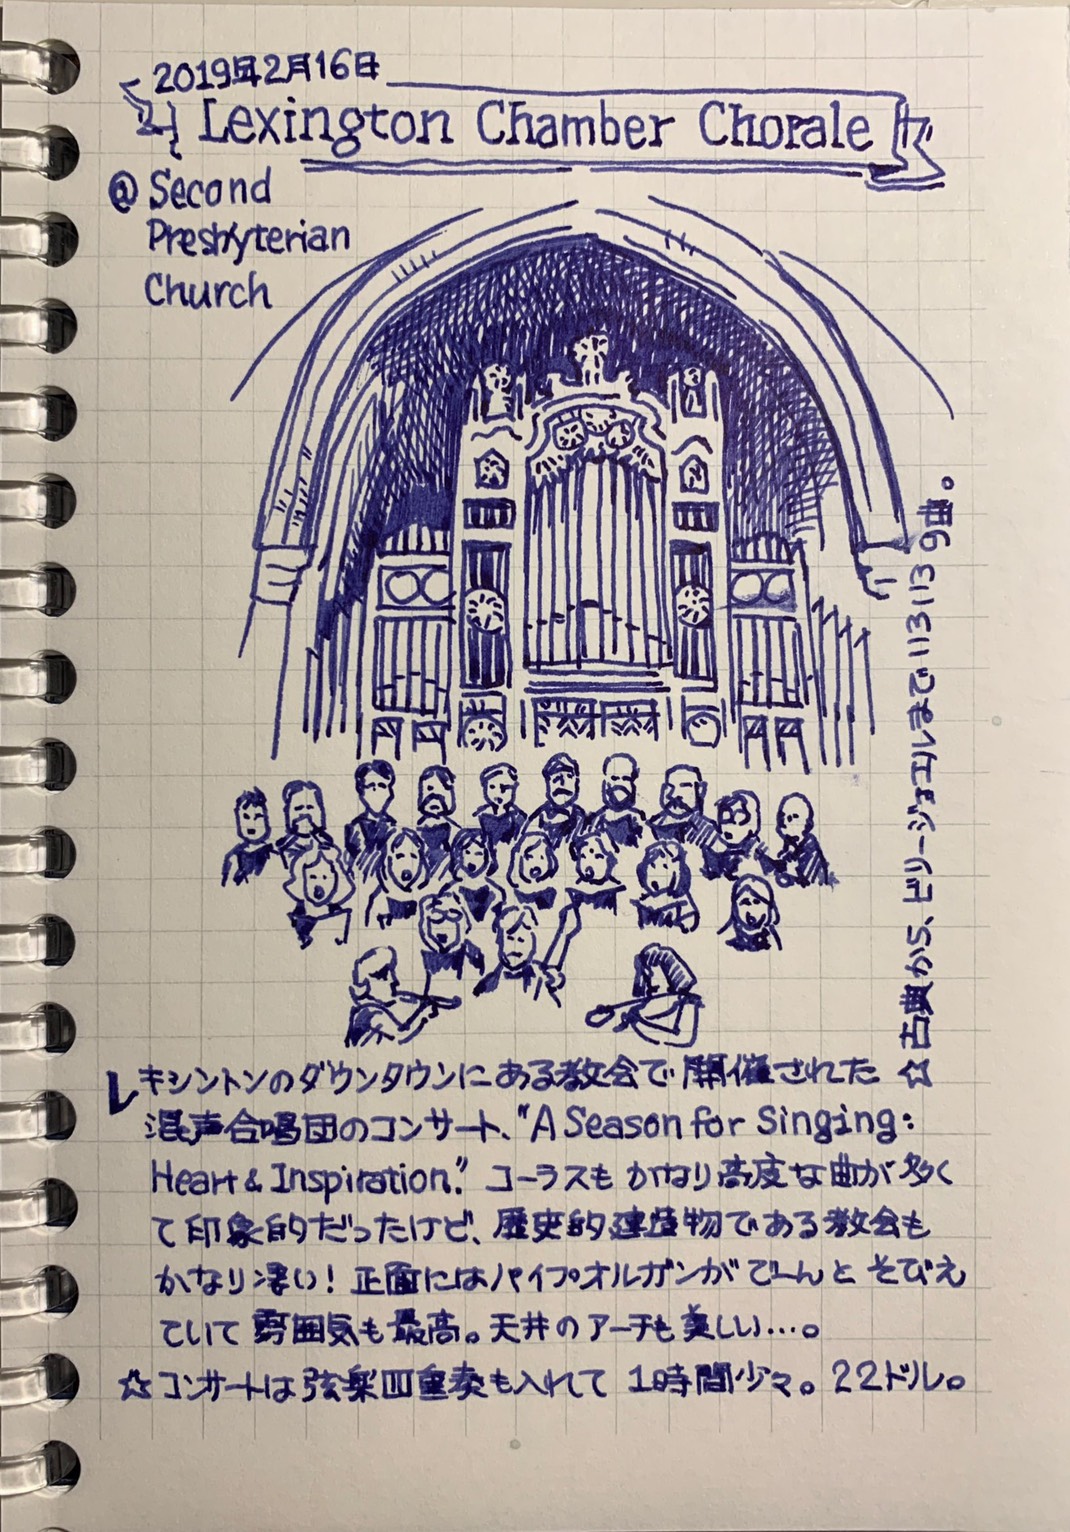 2019年2月16日
Lexington Chamber Chorale
@ Second
Presbyterian
Church
レキシントンのダウンタウンにある教会で開催された
混声合唱団のコンサート、"A Season for Singing:
Heart & Inspiration." コーラスもかなり高度な曲が多く
て印象的だったけど、歴史的建造物である教会も
かなり凄い！正面にはパイプオルガンがでーんとそびえ
ていて雰囲気も最高。天井のアーチも美しい…。
☆コンサートは弦楽四重奏も入れて1時間少々。22ドル。
☆古典から、ビリージョエルまでいろいろ9曲。